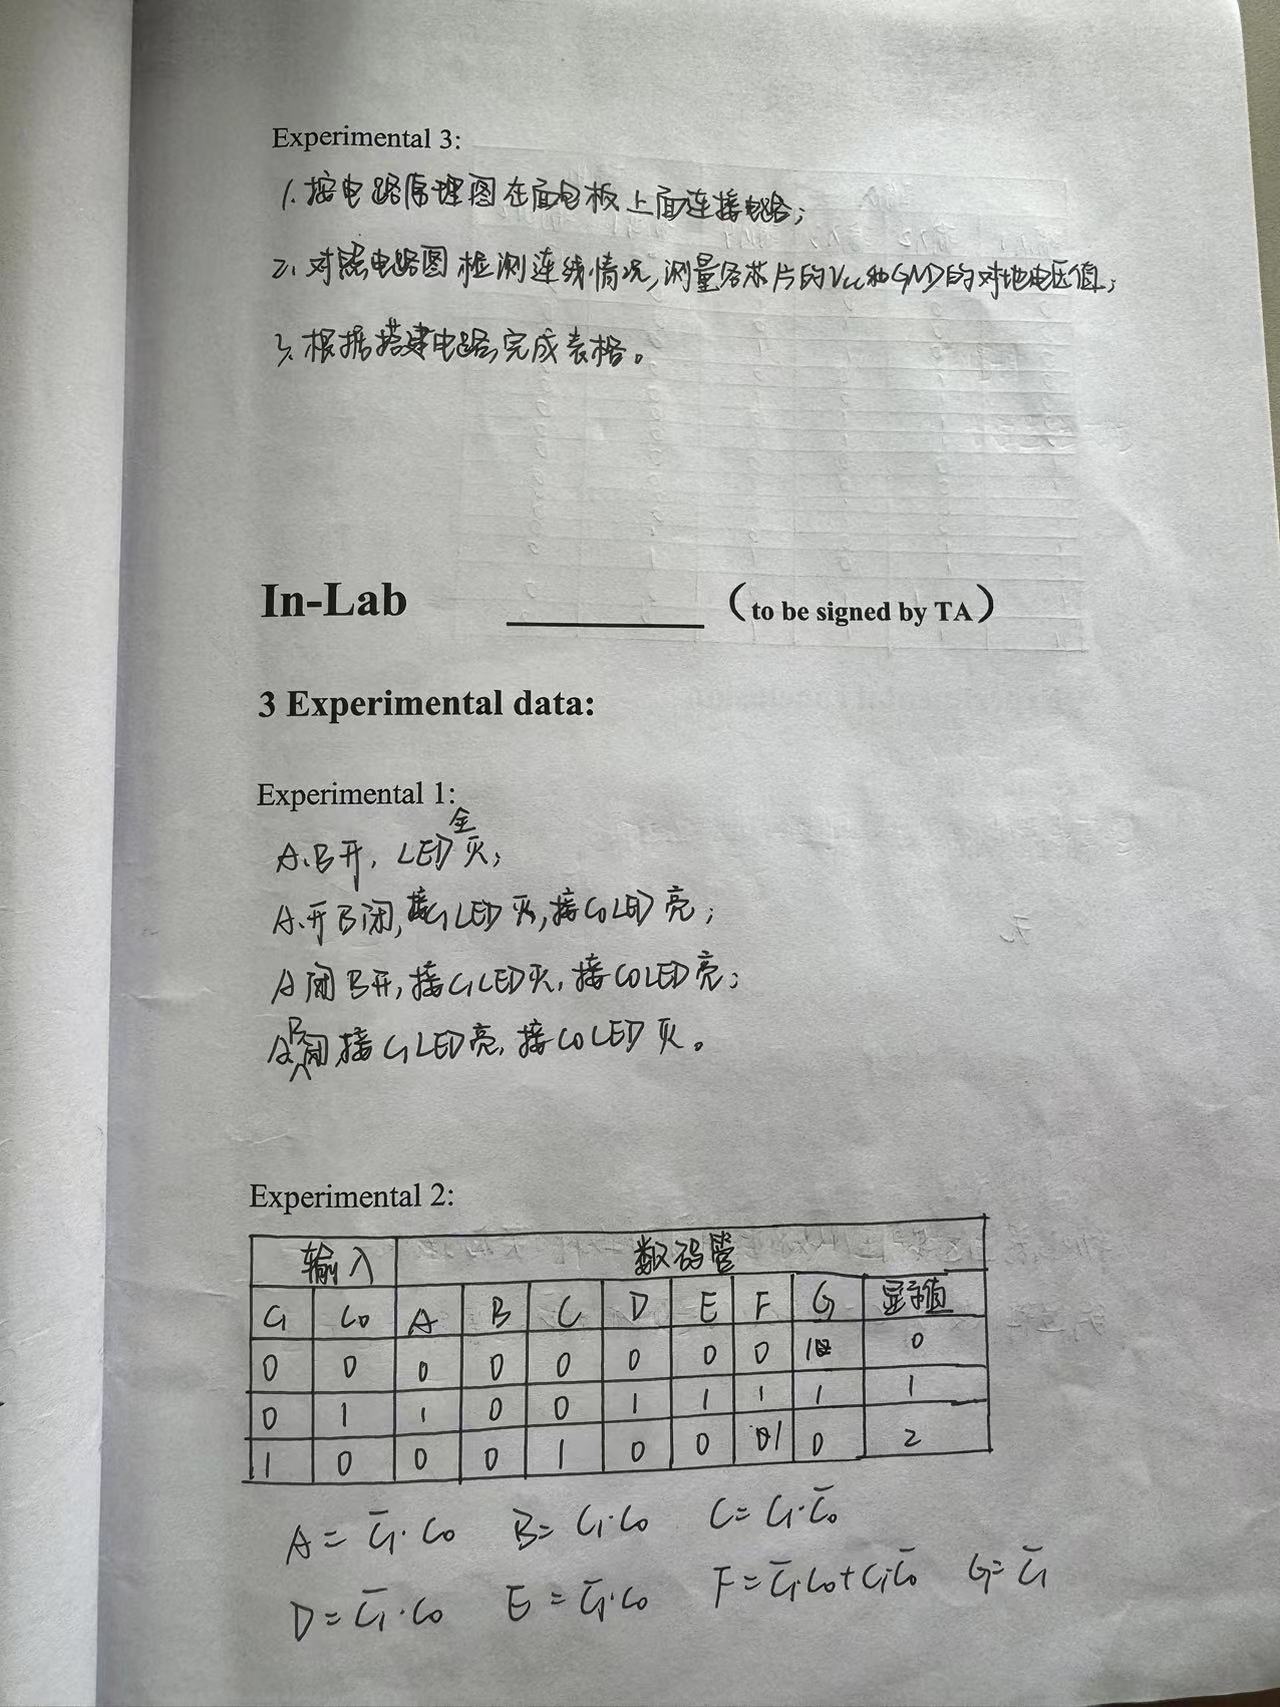 Experimental 3:
1. 按电路原理图在面包板上面连接电路;
2. 对照电路图检测连线情况,测量各芯片的Vcc和GND的对地电压值;
3. 根据搭建电路,完成表格。
In-Lab ________ (to be signed by TA)
3 Experimental data:
Experimental 1:
A.B开, LED全灭;
A.开B闭,接C1LED灭,接C0LED亮;
A闭B开,接C1LED灭,接C0LED亮;
AB闭,接C1LED亮,接C0LED灭。
Experimental 2:
输入 数码管
C1 C0 A B C D E F G 显示值
0 0 0 0 0 0 0 0 1 0
0 1 1 0 0 1 1 1 1 1
1 0 0 0 1 0 0 1 0 2
A = C̅1·C0 B = C1·C0 C = C1·C̅0
D = C̅1·C0 E = C̅1·C0 F = C̅1C0+C1C̅0 G = C̅1